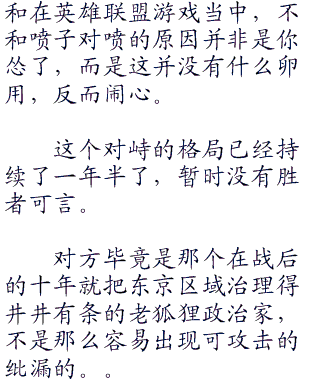 和在英雄联盟游戏当中，不
和喷子对喷的原因并非是你
怂了，而是这并没有什么卵
用，反而闹心。
这个对峙的格局已经持
续了一年半了，暂时没有胜
者可言。
对方毕竟是那个在战后
的十年就把东京区域治理得
井井有条的老狐狸政治家，
不是那么容易出现可攻击的
纰漏的。。